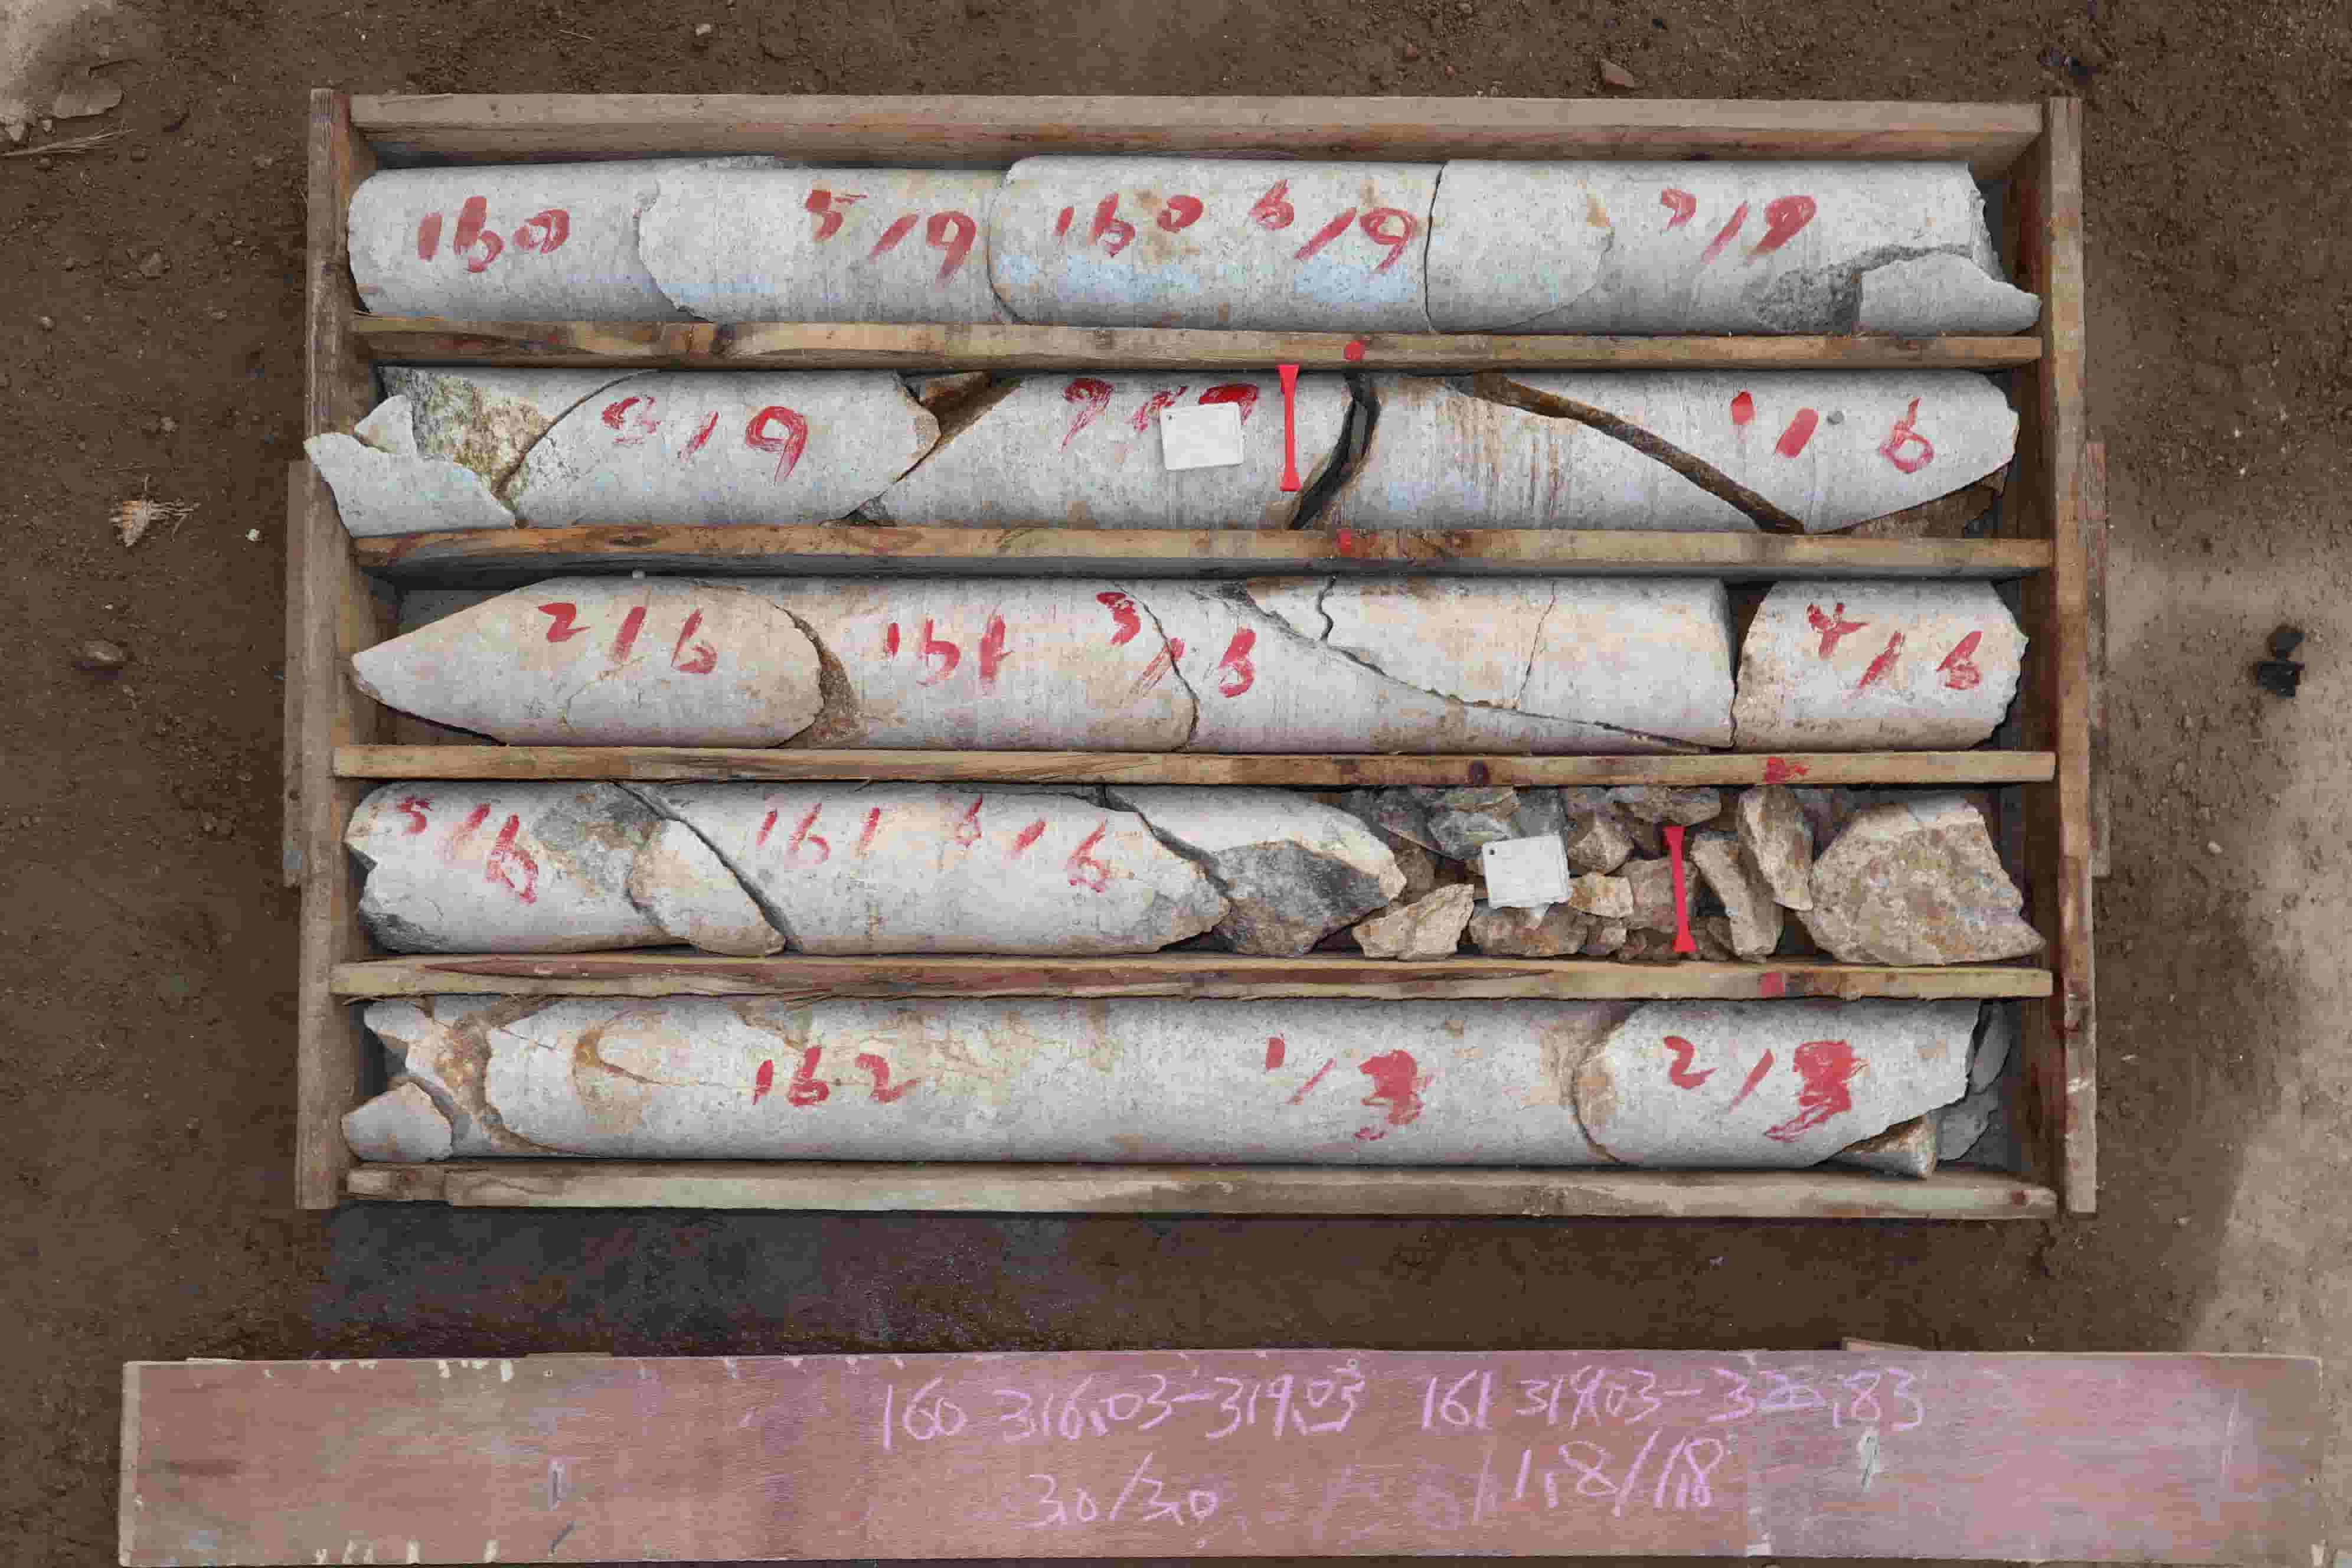 160 5/9 160 6/9 7/9
8/9 9/9 1/6
2/6 161 3/6 4/6
5/6 161 6/6
162 1/3 2/3
160 316.03-319.03 161 319.03-320.83
3.0/3.0 1.8/1.8